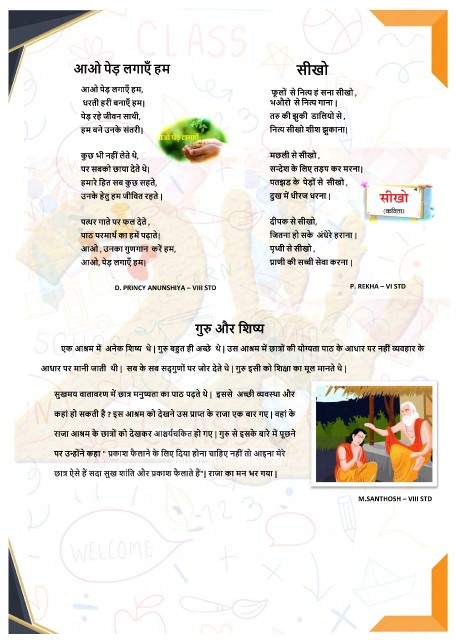 CLASS
आओ पेड़ लगाएँ हम
आओ पेड़ लगाएँ हम,
धरती हरी बनाएँ हम|
पेड़ रहे जीवन साथी,
हम बने उनके संतरी|
कुछ भी नहीं लेते थे,
पर सबको छाया देते थे|
हमारे हित सब कुछ सहते,
उनके हेतु हम जीवित रहते |
पत्थर गाते पर फल देते ,
पाठ परमार्थ का हमें पढ़ाते|
आओ , उनका गुणगान करें हम,
आओ, पेड़ लगाएँ हम|
D. PRINCY ANUNSHIYA – VIII STD
सीखो
फूलों से नित्य हं सना सीखो ,
भऔरो से नित्य गाना |
तरु की झुकी डालियो से ,
नित्य सीखो शीश झुकाना|
मछली से सीखो ,
सन्देश के लिए तड़प कर मरना|
पतझड के पेड़ों से सीखो ,
दुख में धीरज धरना |
दीपक से सीखो,
जितना हो सके अंधेरे हराना |
पृथ्वी से सीखो ,
प्राणी की सच्ची सेवा करना |
सीखो
(कविता)
P. REKHA – VI STD
गुरु और शिष्य
एक आश्रम में अनेक शिष्य थे | गुरु बहुत ही अच्छे थे | उस आश्रम में छात्रों की योग्यता पाठ के आधार पर नहीं व्यवहार के
आधार पर मानी जाती थी | सब के सब सद्गुणों पर जोर देते थे | गुरु इसी को शिक्षा का मूल मानते थे |
सुखमय वातावरण में छात्र मनुष्यता का पाठ पढ़ते थे | इससे अच्छी व्यवस्था और
कहां हो सकती है ? इस आश्रम को देखने उस प्राप्त के राजा एक बार गए | वहां के
राजा आश्रम के छात्रों को देखकर आश्चर्यचकित हो गए | गुरु से इसके बारे में पूछने
पर उन्होंने कहा " प्रकाश फैलाने के लिए दिया होना चाहिए नहीं तो आइना मेरे
छात्र ऐसे हैं सदा सुख शांति और प्रकाश फैलाते हैं"| राजा का मन भर गया |
M.SANTHOSH – VIII STD
WELCOME